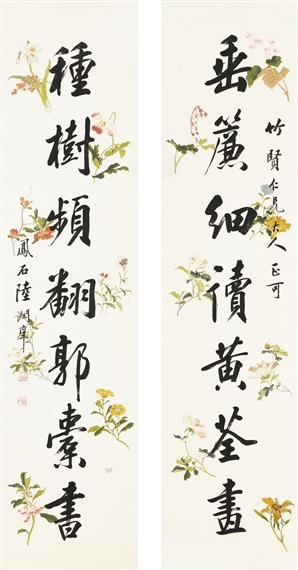 垂簾細讀黃荃畫
竹賢仁兄大人正可
種樹頻翻郭橐書
鳳石陸潤庠